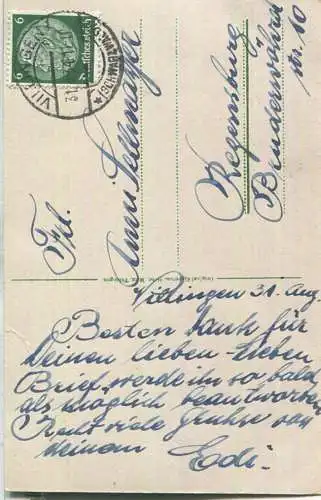 6 6
VILLINGEN
(SCHWARZWALD)
31.
Deutsches Reich
Frl.
Anni Sellmayer
Regensburg
Nr. 10
Villingen 31. Aug.
Besten Dank für
Deinen lieben-lieben
Brief, werde ihn so bald
als möglich beantworten
Recht viele Grühse von
Deinem Edi.